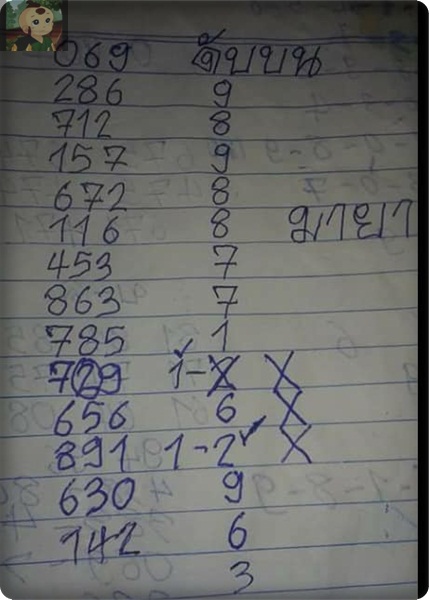 069 ดับบน
286 9
712 8
157 9
672 8
116 8
มายา
453 7
863 7
785 1
729 1-8 X
656 6 X
891 1-2✓ X
630 9
142 6
3